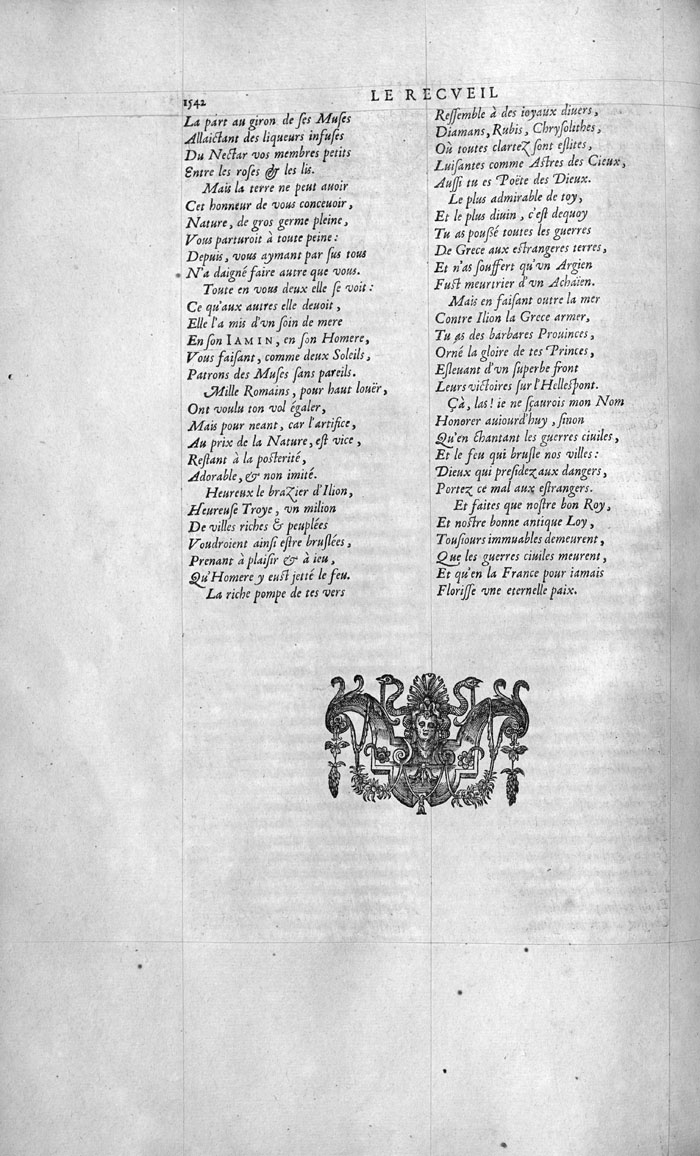 1542
LE RECVEIL
La part au giron de ſes Muſes
Allaictant des liqueurs infuſes
Du Nectar vos membres petits
Entre les roſes & les lis.
Mais la terre ne peut auoir
Cet honneur de vous conceuoir,
Nature, de gros germe pleine,
Vous parturoit à toute peine:
Depuis, vous aymant par ſus tous
N'a daigné faire autre que vous.
Toute en vous deux elle ſe voit:
Ce qu'aux autres elle deuoit,
Elle l'a mis d'vn ſoin de mere
En ſon IAMIN, en ſon Homere,
Vous faiſant, comme deux Soleils,
Patrons des Muſes ſans pareils.
Mille Romains, pour haut louër,
Ont voulu ton vol égaler,
Mais pour neant, car l'artifice,
Au prix de la Nature, eſt vice,
Reſtant à la poſterité,
Adorable, & non imité.
Heureux le brazier d'Ilion,
Heureuſe Troye, vn milion
De villes riches & peuplées
Voudroient ainſi eſtre bruſlées,
Prenant à plaiſir & à ieu,
Qu'Homere y euſt jetté le feu.
La riche pompe de tes vers
Reſſemble à des ioyaux diuers,
Diamans, Rubis, Chryſolithes,
Où toutes clartez ſont eſlites,
Luiſantes comme Aſtres des Cieux,
Auſſi tu es Poëte des Dieux.
Le plus admirable de toy,
Et le plus diuin, c'eſt dequoy
Tu as pouſſé toutes les guerres
De Grece aux eſtrangeres terres,
Et n'as ſouffert qu'vn Argien
Fuſt meurtrier d'vn Achaïen.
Mais en faiſant outre la mer
Contre Ilion la Grece armer,
Tu as des barbares Prouinces,
Orné la gloire de tes Princes,
Eſleuant d'vn ſuperbe front
Leurs victoires ſur l'Helleſpont.
Çà, las! ie ne ſçaurois mon Nom
Honorer auiourd'huy, ſinon
Qu'en chantant les guerres ciuiles,
Et le feu qui bruſle nos villes:
Dieux qui preſidez aux dangers,
Portez ce mal aux eſtrangers.
Et faites que noſtre bon Roy,
Et noſtre bonne antique Loy,
Touſiours immuables demeurent,
Que les guerres ciuiles meurent,
Et qu'en la France pour iamais
Floriſſe vne eternelle paix.